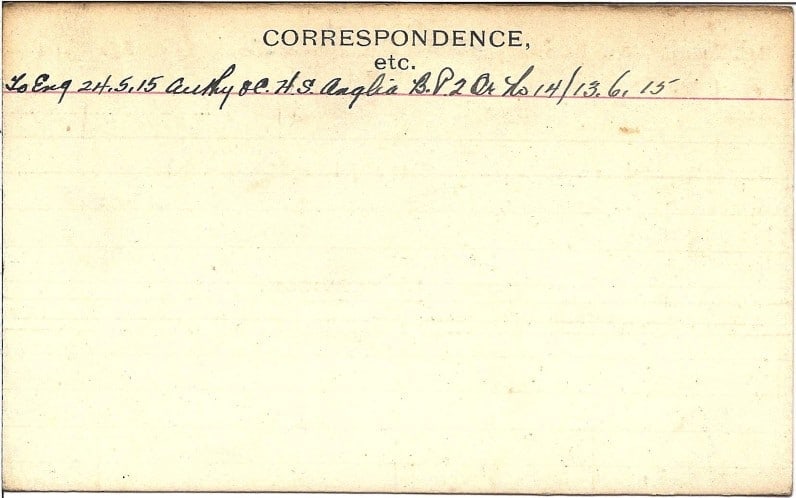 CORRESPONDENCE,
etc.
To Eng 24.5.15 Authy OC. H.S. Anglia B.P. 2 Or No 14/13.6.15